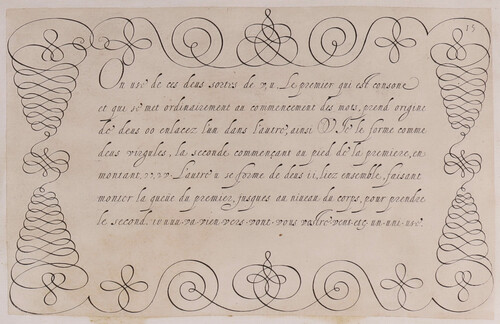 15
On use de ces deus sortes de v, u. Le premier qui est consone
et qui se met ordinairement au commencement des mots, prend origine
de deus oo enlacez l'un dans l'autre, ainsi Je le forme comme
deus virgules, la seconde commençant au pied de la premiere, en
montant, v, v. L'autre u se forme de deus ii, liez ensemble, faisant
monter la queüe du premier, jusques au niveau du corps, pour prendre
le second. va vien vers vont vous vostre vent etc un uni use.